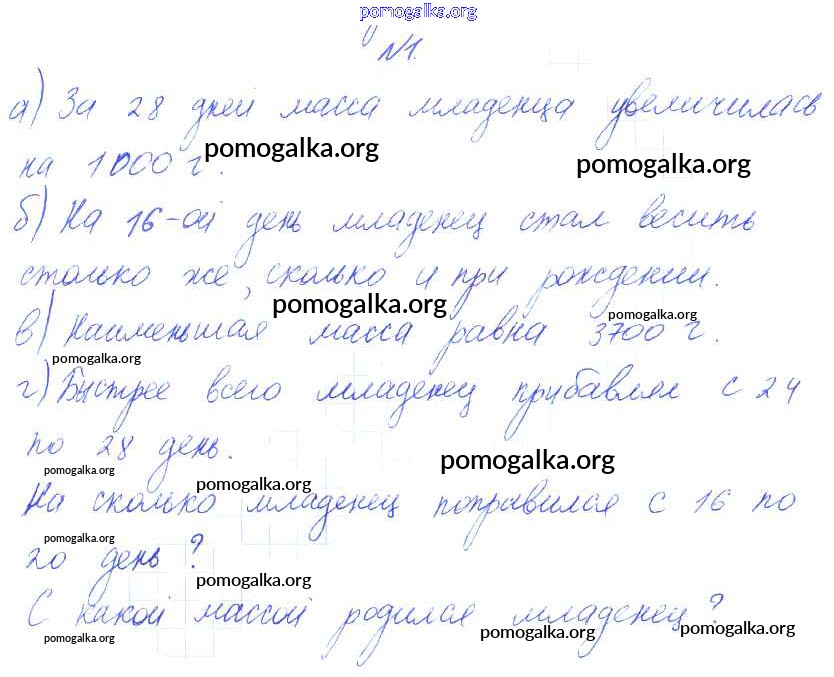 pomogalka.org
№1.
а) За 28 дней масса младенца увеличилась
на 1000 г.
pomogalka.org
pomogalka.org
б) На 16-ой день младенец стал весить
столько же, сколько и при рождении.
pomogalka.org
в) Наименьшая масса равна 3700 г.
pomogalka.org
pomogalka.org
г) Быстрее всего младенец прибавлял с 24
по 28 день.
pomogalka.org
pomogalka.org
На сколько младенец поправился с 16 по
pomogalka.org
20 день?
pomogalka.org
pomogalka.org
С какой массой родился младенец?
pomogalka.org
pomogalka.org
pomogalka.org